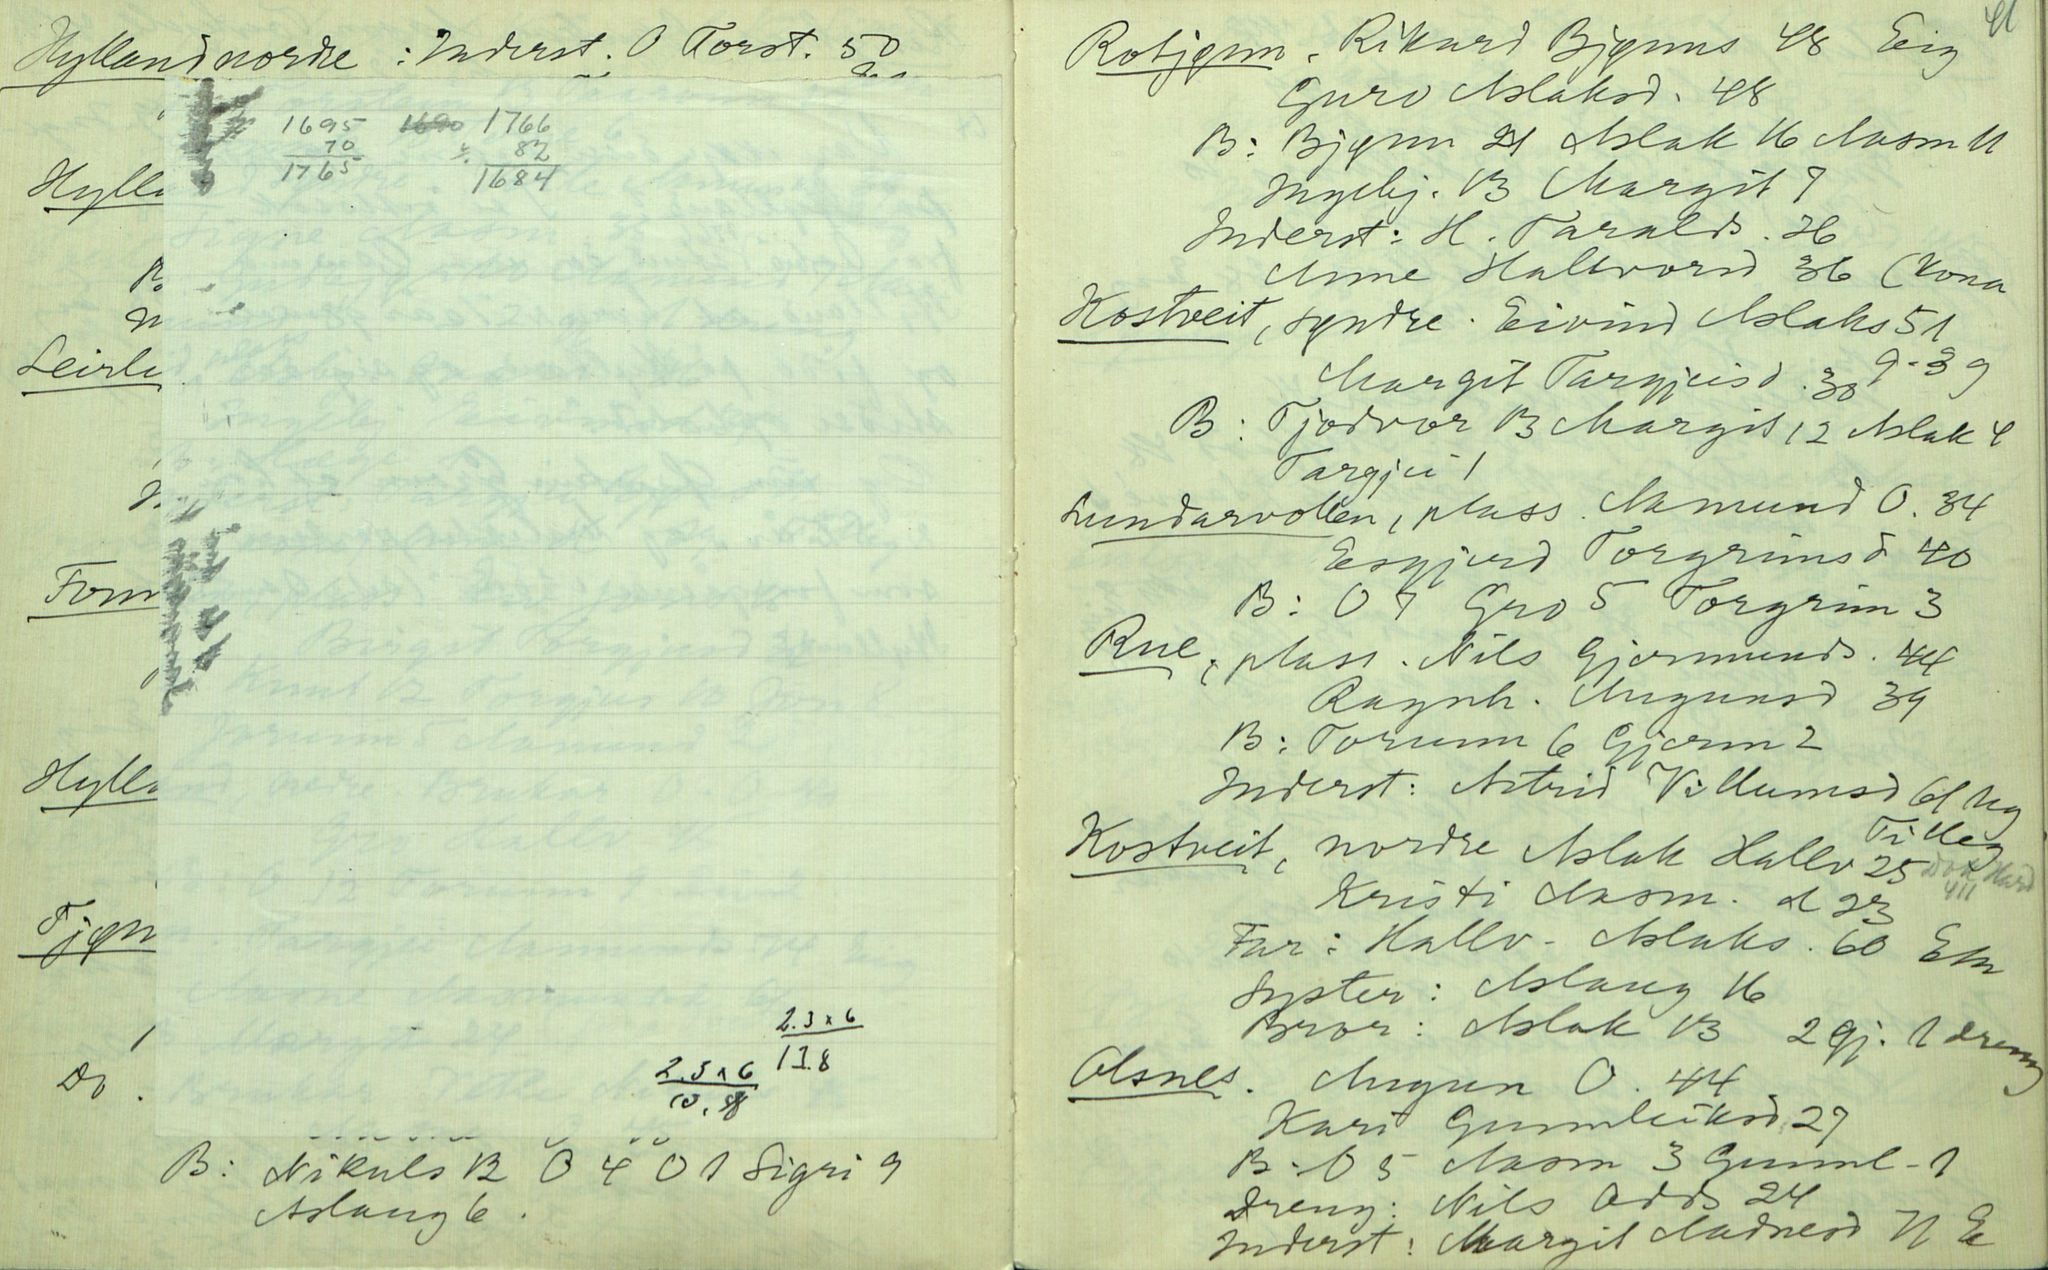 Hylland nordre : Inderst. O Torst. 50
1695 1690 1766
70 82
1765 1684
Hylla
B
Leirli
Form
Hylla
Tjøn
Do .
2.3 x 6
13.8
2.3 x 6
B: Nikuls 12 O 4 O 1 Sigri 9
Aslaug 6 .
41
Robjønn. Rikard Bjønns 48 Eig
Guro Aslaksd. 48
B: Bjønn 21 Aslak 16 Aasm 11
Ingebj. 13 Margit 7
Inderst: H. Taralds. 26
Anne Hallvord 36 (Kona
Kostveit, syndre. Eivind Aslaks 51
Margit Targjeisd. 38 9-39
B: Tjodvor 13 Margit 12 Aslak 4
Targjei 1
Lundarvollen, plass. Aamund O. 34
Esgjerd Torgrimsd 40
B: O 7 Gro 5 Torgrim 3
Rue, plass. Nils Gjermunds. 44
Ragnh. Augunsd 39
B: Torunn 6 Gjerm 2
Inderst: Astrid Villumsd 61 Ug
Tilleg
Kostveit, nordre Aslak Hallv 25
Kristi Aasm. d 23
Far: Hallv. Aslaks. 60 Ekm
Syster: Aslaug 16
Bror: Aslak 13 2 gj. 1 dreng
Olsnes. Augun O. 44
Kari Gunnleiksd 27
B. O 5 Aasm 3 Gunnl - 1
Dreng: Nils Odds 24
Inderst: Margit Aadnesd 71 E